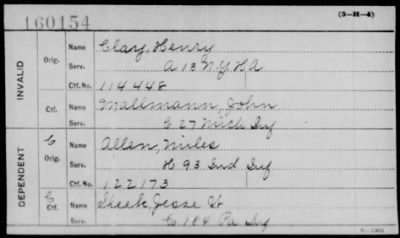 160154
(3-H-4)
INVALID
Orig. Name Clay, Henry
Serv. A 13 N.Y. H A
Ctf. No. 114448
Ctf. Name Mallmann, John
Serv. E 27 Mich Inf
DEPENDENT
C Orig. Name Allen, Miles
Serv. H 93 Ind Inf
Ctf. No. 122173
C Ctf. Name Sleek, Jesse
Serv. C 184 Pa Inf